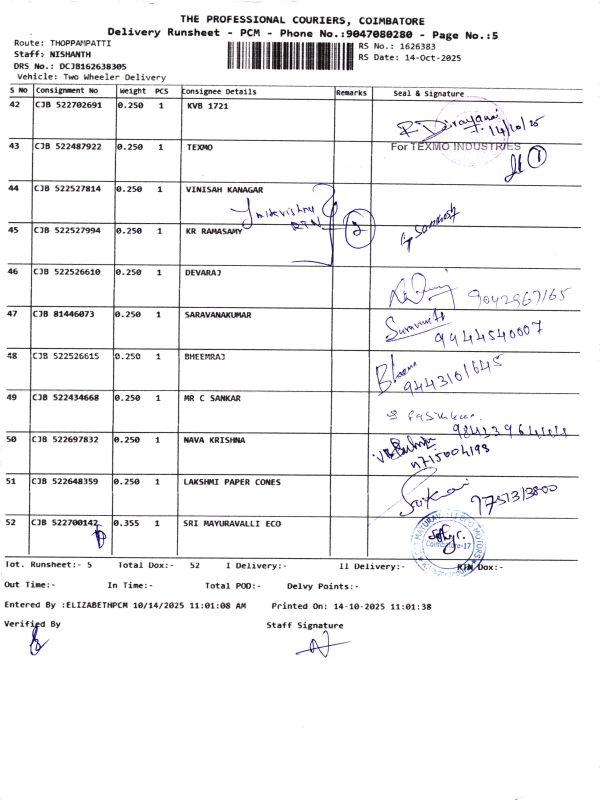 THE PROFESSIONAL COURIERS, COIMBATORE
Delivery Runsheet - PCM - Phone No.:9047080280 - Page No.:5
Route: THOPPAMPATTI
RS No.: 1626383
Staff: NISHANTH
RS Date: 14-Oct-2025
DRS No.: DCJB162638305
Vehicle: Two Wheeler Delivery
S No Consignment No Weight PCS Consignee Details Remarks Seal & Signature
42 CJB 522702691 0.250 1 KVB 1721
14/10/25
43 CJB 522487922 0.250 1 TEXMO For TEXMO INDUSTRIES
1
44 CJB 522527814 0.250 1 VINISAH KANAGAR
RTN 2
45 CJB 522527994 0.250 1 KR RAMASAMY
46 CJB 522526610 0.250 1 DEVARAJ
9042967165
47 CJB 81446073 0.250 1 SARAVANAKUMAR
9944540007
48 CJB 522526615 0.250 1 BHEEMRAJ
9443101645
49 CJB 522434668 0.250 1 MR C SANKAR
50 CJB 522697832 0.250 1 NAVA KRISHNA
51 CJB 522648359 0.250 1 LAKSHMI PAPER CONES
52 CJB 522700142 0.355 1 SRI MAYURAVALLI ECO
Coimbatore-17
Tot. Runsheet:- 5 Total Dox:- 52 I Delivery:- II Delivery:- RTN Dox:-
Out Time:- In Time:- Total POD:- Delvy Points:-
Entered By :ELIZABETHPCM 10/14/2025 11:01:08 AM Printed On: 14-10-2025 11:01:38
Verified By Staff Signature